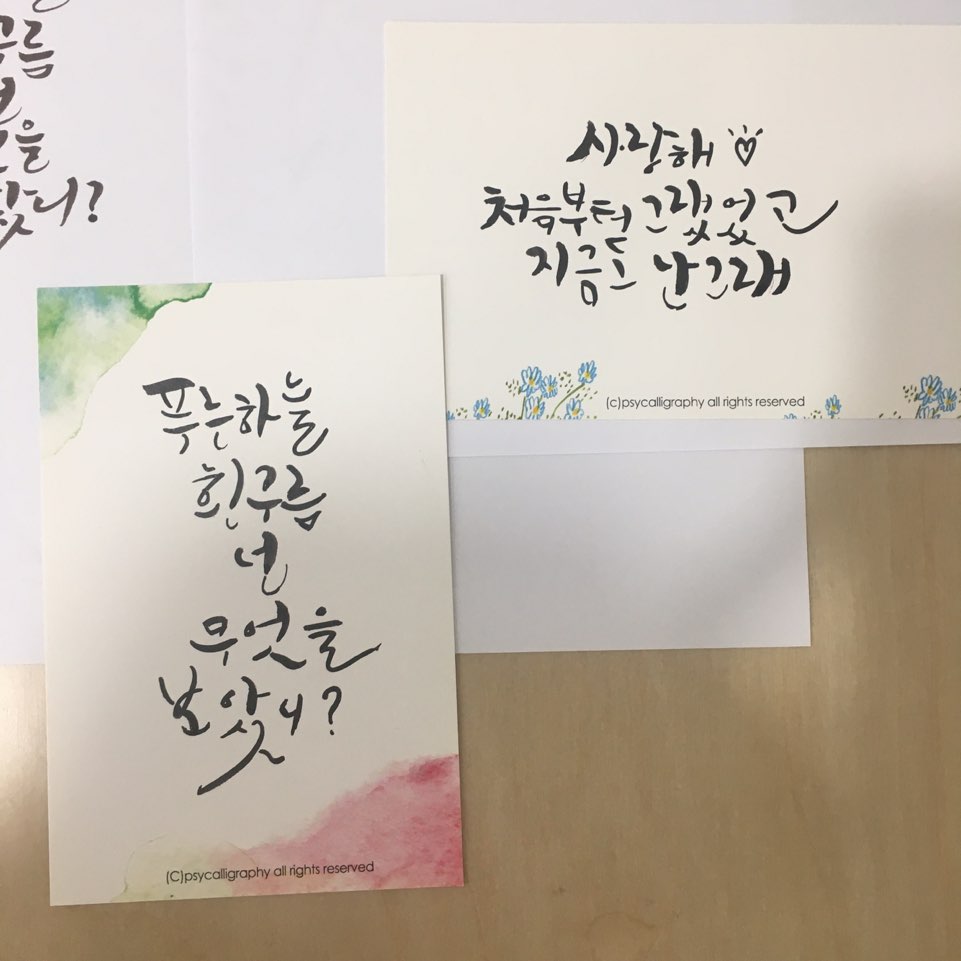 구름
을
았니?
사랑해
처음부터 그랬었고
지금도 난 그래
(c)psycalligraphy all rights reserved
푸른하늘
흰구름
넌
무엇을
보았니?
(C)psycalligraphy all rights reserved